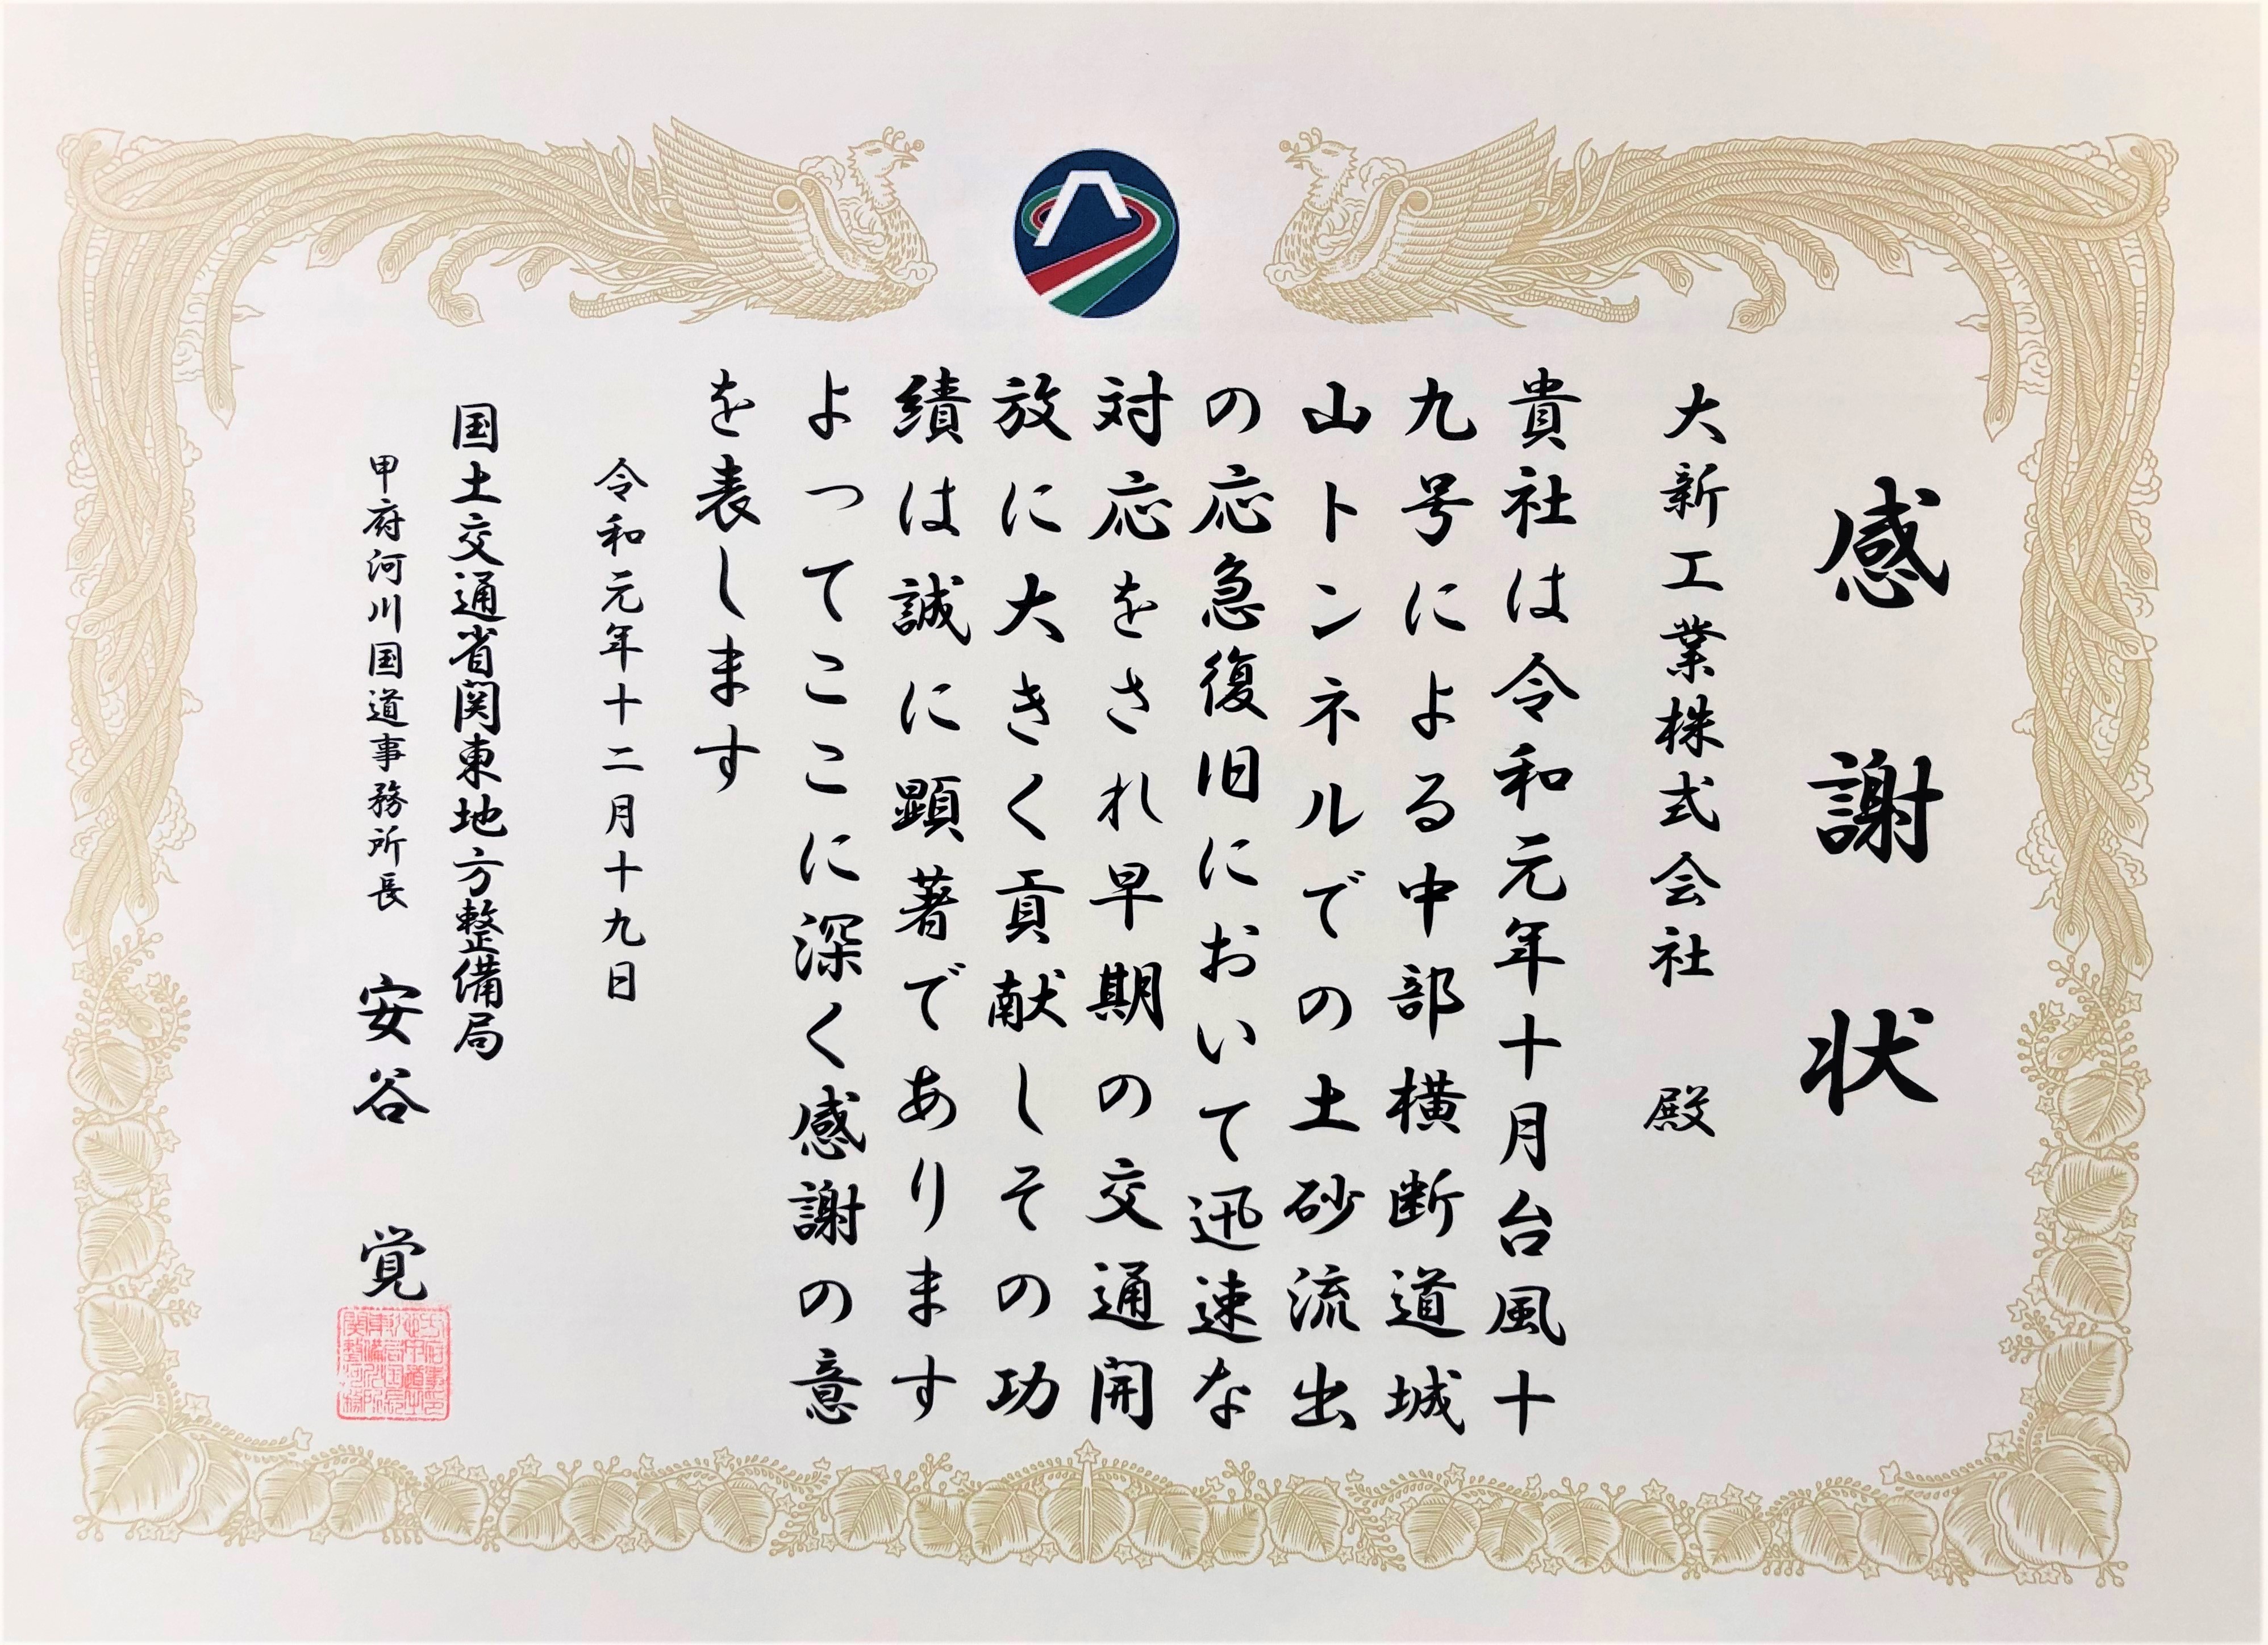 感謝状
大新工業株式会社 殿
貴社は令和元年十月台風十
九号による中部横断道城
山トンネルでの土砂流出
の応急復旧において迅速な
対応をされ早期の交通開
放に大きく貢献しその功
績は誠に顕著であります
よってここに深く感謝の意
を表します
令和元年十二月十九日
国土交通省関東地方整備局
甲府河川国道事務所長 安谷 覚